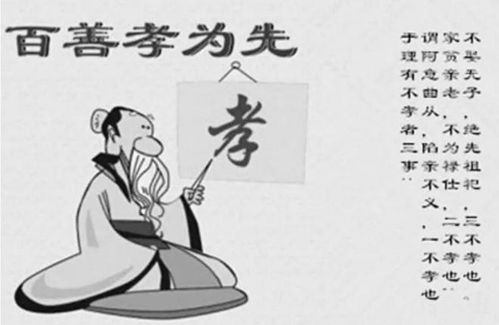 百善孝为先
孝
于理有不孝者三事，
谓阿意曲从，陷亲不义，一不孝也
家贫亲老，不为禄仕，二不孝也
不娶无子，绝先祖祀，三不孝也。